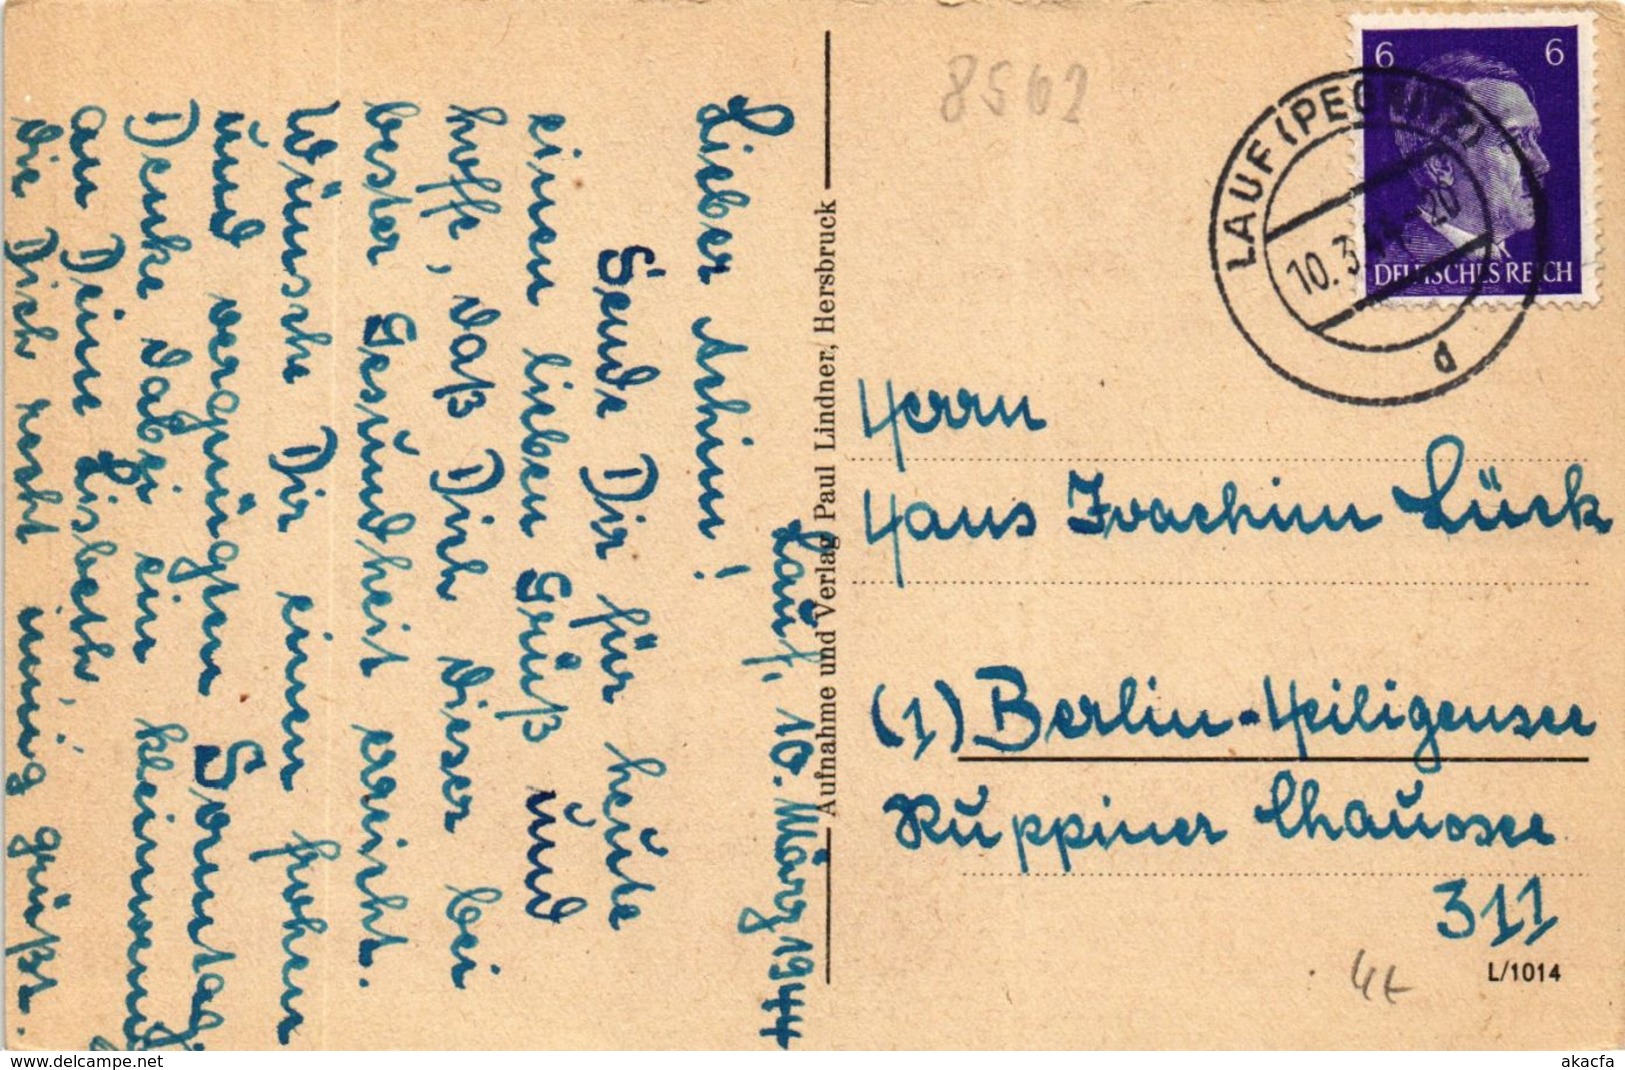 Lauf, 10. März 1944
Lieber Achim!
Sende Dir für heute
einen lieben Gruß und
hoffe, daß Dich dieser bei
bester Gesundheit erreicht.
Wünsche Dir einen frohen
und vergnügten Sonntag.
Denke dabei ein klein wenig
an Deine Lisbeth,
die Dich recht innig grüßt.
Aufnahme und Verlag Paul Lindner, Hersbruck
8562
6 6
DEUTSCHES REICH
LAUF (PEGNITZ)
10.3.44-20
d
Herrn
Hans Joachim Lück
(1) Berlin-Heiligensee
Ruppiner Chaussee
311
L/1014
delcampe.net
akacfa